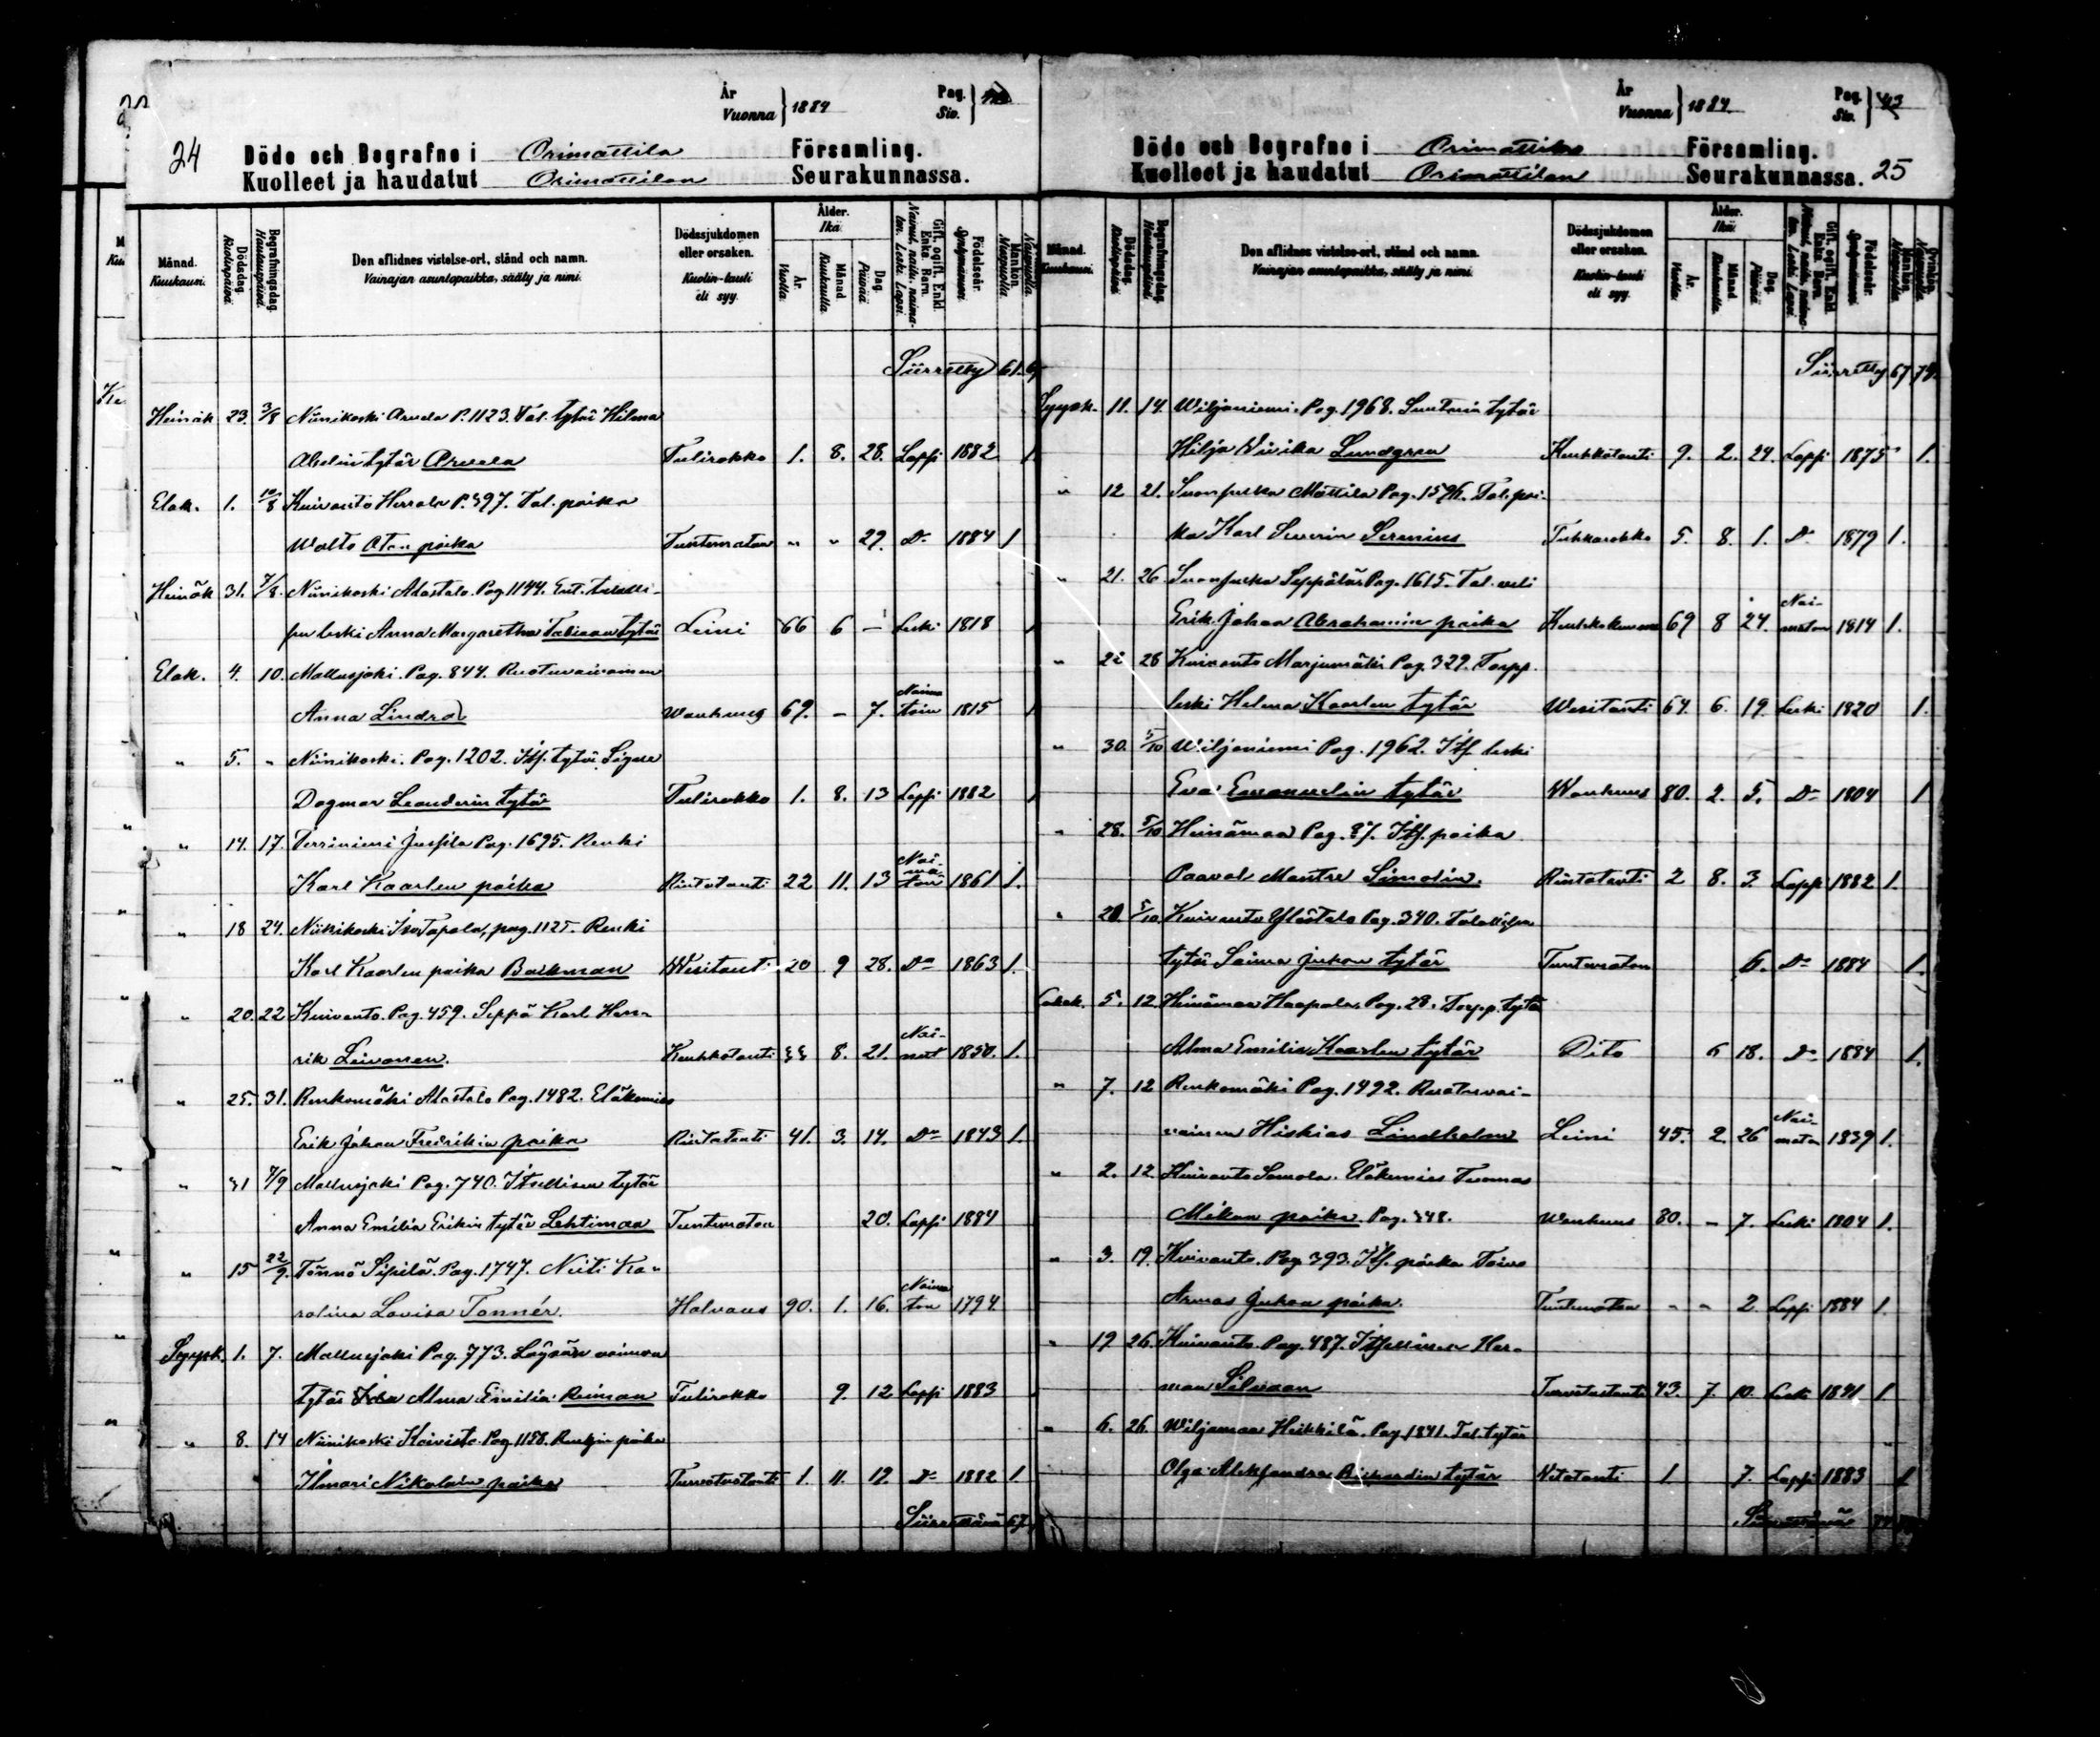 24
År
Vuonna } 1884
Pag.
Siv.
Döde och Begrafne i Orimattila Församling.
Kuolleet ja haudatut Orimattilan Seurakunnassa.
Månad. Kuukausi.
Dödsdag. Kuolinpäivä
Begrafningsdag. Hautauspäivä
Den aflidnes vistelse-ort, stånd och namn.
Vainajan asuntopaikka, sääty ja nimi.
Dödssjukdomen eller orsaken.
Kuolin-tauti eli syy.
Ålder. Ikä.
År. Vuotta.
Månad. Kuukautta.
Dag. Päivää
Gift, ogift, Enkl. Enka, Barn.
Födelseår.
Mankön. Miespuolia.
Siirretty 61. 69
Heinäk 23. 3/8 Niinikoski Arvela P. 1123. Tal. tytär Hilma
Abelin tytär Arvela Tulirokko 1. 8. 28. Lapsi 1882 1
Elok. 1. 10/8 Kuivanto Herrala P. 397. Tal. poika
Walto Aten poika Tuntematon " " 27. Do 1884 1
Heinäk 31. 7/8. Niinikoski Alastalo Pag. 1144. Ent.
leski Anna Margaretha Fabiaan tytär Leini 66 6 — Leski 1818 1
Elok. 4. 10. Mallusjoki. Pag. 844. Ruotuvaivainen
Anna Lindroo Wanhuus 69. - 7. Naimatoin 1815 1
" 5. " Niinikoski. Pag. 1202. Its. tytär Signe
Dagmar Leanderin tytär Tulirokko 1. 8. 13 Lapsi 1882 1
" 14. 17. Terriniemi Jussila Pag. 1695. Renki
Karl Kaarlen poika Rintatauti 22 11. 13 Naimaton 1861 1.
" 18 24. Niinikoski IsoTapola, pag. 1125. Renki
Karl Kaarlen poika Backman Wesitauti 20 9 28. Do 1863 1.
" 20. 22 Kuivanto. Pag. 459. Seppä Karl Hen-
rik Leivonen. Keuhkotauti 33 8. 21. Nainut 1850. 1.
" 25. 31. Renkomäki Alastalo Pag. 1482. Eläkemies
Erik Johan Fredrikin poika Rintatauti 41. 3. 14. Do 1843 1.
" 31 7/9 Mallusjoki Pag. 740. Itsellisen tytär
Anna Emilia Erikin tytär Lehtimaa Tuntematon 20. Lapsi 1884
" 15 22/9. Tönnö Sipilä. Pag. 1747. Neiti Ka-
rolina Lovisa Tonnér. Halvaus 90. 1. 16. Naimaton 1794
Syysk. 1. 7. Mallusjoki Pag. 773. Löysän vaimon
tytär Ida Alma Emilia Reiman Tulirokko 9. 12 Lapsi 1883
" 8. 14 Niinikoski Koivisto. Pag. 1158. Rengin poika
Ilmari Nikolain poika Turvotustauti 1. 11. 19. Do 1882 1
Siirrettävä 67
År
Vuonna } 1884.
Pag.
Siv. } 43
Döde och Begrafne i Orimattila Församling.
Kuolleet ja haudatut Orimattilan Seurakunnassa. 25
Månad. Kuukausi.
Dödsdag. Kuolinpäivä
Begrafningsdag. Hautauspäivä
Den aflidnes vistelse-ort, stånd och namn.
Vainajan asuntopaikka, sääty ja nimi.
Dödssjukdomen eller orsaken.
Kuolin-tauti eli syy.
Ålder. Ikä.
År. Vuotta.
Månad. Kuukautta.
Dag. Päivää
Gift, ogift, Enkl. Enka, Barn.
Födelseår.
Mankön. Miespuolia.
Qvinkön.
Siirretty 67 78.
Syysk. 11. 14. Wiljaniemi. Pag. 1968. Suutarin tytär
Hilja Wivika Lundgren Keuhkotauti 9. 2. 24. Lapsi 1875 1.
" 12 21. Suonjulka Mattila Pag. 1596. Tal. poi-
ka Karl Severin Serenius Tuhkarokko 5. 8. 1. Do 1879 1.
" 21. 26. Suonjulka Seppälä Pag. 1615. Tal. veli
Erik Johan Abrahamin poika 69 8 24. Naimaton 1814 1.
" 22 28 Kuivanto Marjumäki Pag. 329. Torpp.
leski Helena Kaarlen tytär Wesitauti 64. 6. 19. Leski 1820 1.
" 30. 5/10 Wiljaniemi Pag. 1962. Its. leski
Eva Emanuelin tytär Wanhuus 80. 2. 5. Do 1804 1
" 28. 5/10 Heinämaa Pag. 87. Its. poika
Paavali Mantre Simolin. Rintatauti 2 8. 3. Lapsi 1882 1.
" 29. 5/10. Kuivanto Ylöstalo Pag. 340. Talollisen
tytär Saima Juhon tytär Tuntematon 6. Do 1884 1.
Lokak. 5. 12. Heinämaa Haapala. Pag. 28. Torpp. tytär
Alma Emilia Kaarlen tytär Dito 6 18. Do 1884 1.
" 7. 12 Renkomäki Pag. 1492. Ruotuvai-
vainen Hiskias Lindholm Leini 45. 2. 26 Naimaton 1839 1.
" 2. 12. Kuivanto Samola. Eläkemies Tuomas
Mikon poika. Pag. 348. Wanhuus 80. - 7. Leski 1804 1.
" 3. 19. Kuivanto. Pag. 393. Its. poika Toivo
Armas Juhon poika. Tuntematon " " 2. Lapsi 1884 1.
" 19 26. Kuivanto. Pag. 487. Itsellinen Her-
man Silvaan Turvotustauti 43. 7. 10. Leski 1841 1
" 6. 26. Wiljamaa Heikkilä. Pag. 1841. Tal. tytär
Olga Aleksandra Rickardin tytär 1 7. Lapsi 1883 1
Siirrettävä